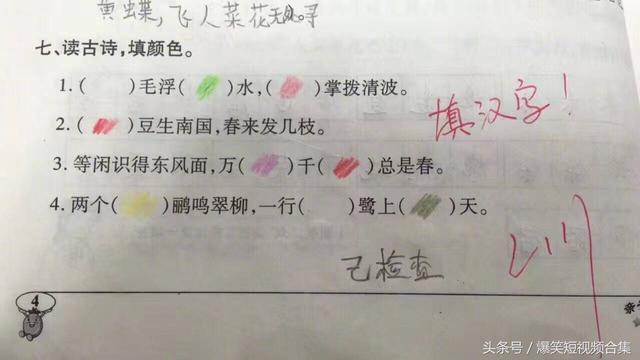 黄蝶,飞入菜花无处寻
七、读古诗,填颜色。
1.( )毛浮( )水,( )掌拨清波。
2.( )豆生南国,春来发几枝。
填汉字!
3.等闲识得东风面,万( )千( )总是春。
4.两个( )鹂鸣翠柳,一行( )鹭上( )天。
已检查
4
亲子
头条号/爆笑短视频合集